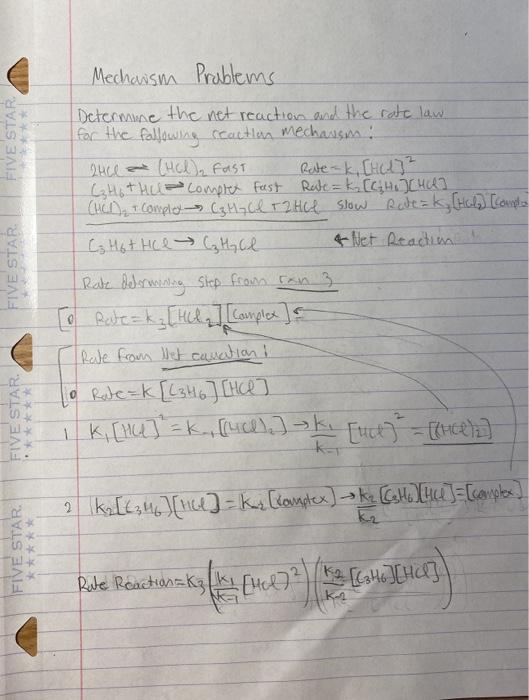 Mechanism Problems
Determine the net reaction and the rate law
for the following reaction mechanism:
2HCl ⇌ (HCl)₂ Fast Rate = k₁[HCl]²
C₃H₆ + HCl ⇌ Complex fast Rate = k₂[C₃H₆][HCl]
(HCl)₂ + Complex → C₃H₇Cl + 2HCl slow Rate = k₃[HCl₂][Comple
C₃H₆ + HCl → C₃H₇Cl ← Net Reaction
Rate determining step from rxn 3
Rate = k₃[HCl₂][Complex]
Rate from Net equation:
Rate = k[C₃H₆][HCl]
1 K₁[HCl]² = K₋₁[(HCl)₂] → K₁/K₋₁ [HCl]² = [(HCl)₂]
2 K₂[C₃H₆][HCl] = K₋₂[complex] → K₂/K₋₂ [C₃H₆][HCl] = [complex]
Rate Reaction = K₃(K₁/K₋₁ [HCl]²)(K₂/K₋₂ [C₃H₆][HCl])
FIVE STAR.
FIVE STAR.
FIVE STAR.
FIVE STAR.